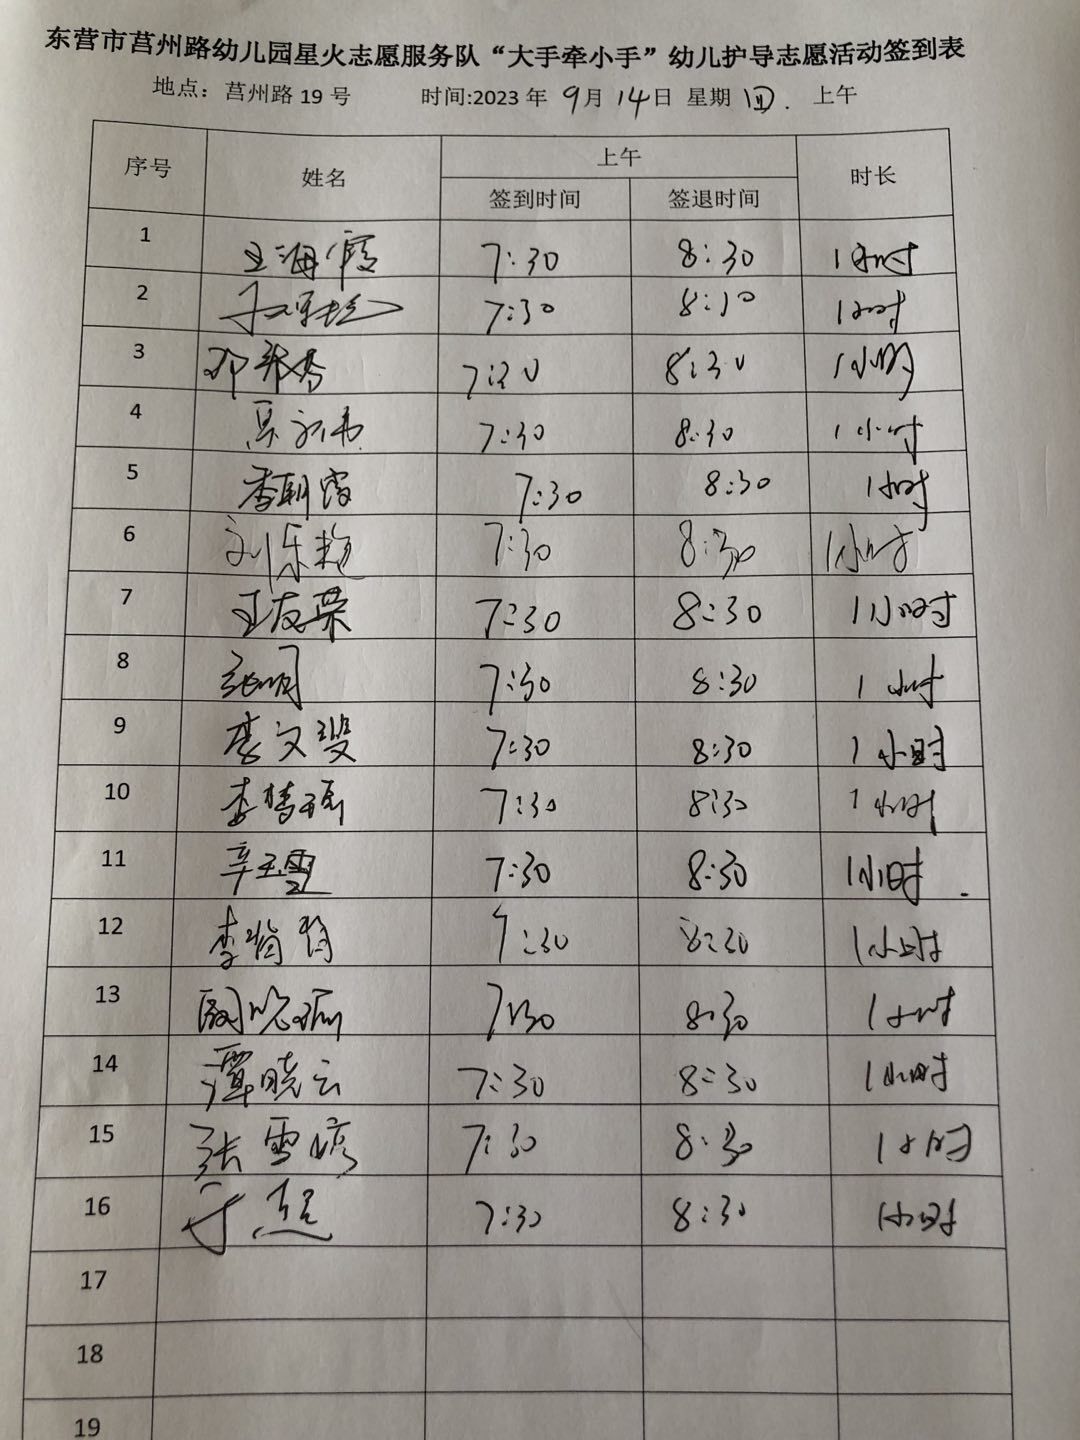 东营市莒州路幼儿园星火志愿服务队“大手牵小手”幼儿护导志愿活动签到表
地点：莒州路 19 号 时间:2023 年 9月 14日 星期 四. 上午
序号 姓名 上午 时长
签到时间 签退时间
1 王海霞 7:30 8:30 1小时
2 7:30 8:30 1小时
3 7:30 8:30 1小时
4 7:30 8:30 1小时
5 李朝霞 7:30 8:30 1小时
6 刘乐艳 7:30 8:30 1小时
7 王友荣 7:30 8:30 1小时
8 张明 7:30 8:30 1小时
9 李文斐 7:30 8:30 1小时
10 7:30 8:30 1小时
11 辛玉雪 7:30 8:30 1小时
12 7:30 8:30 1小时
13 7:30 8:30 1小时
14 潭晓云 7:30 8:30 1小时
15 张雪婷 7:30 8:30 1小时
16 7:30 8:30 1小时
17
18
19